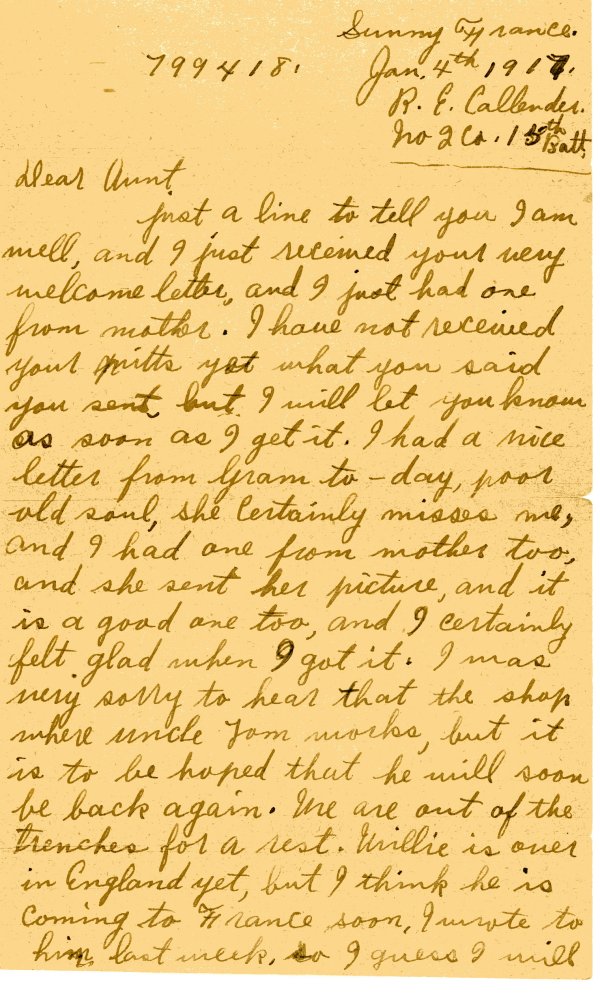 Sunny France.
799418.
Jan. 4th 1917.
R. E. Callender.
No 2 Co. 15th Batt.
Dear Aunt.
Just a line to tell you I am
well, and I just received your very
welcome letter, and I just had one
from mother. I have not received
your mitts yet what you said
you sent, but I will let you know
as soon as I get it. I had a nice
letter from Gram to-day, poor
old soul, she certainly misses me,
and I had one from mother too,
and she sent her picture, and it
is a good one too, and I certainly
felt glad when I got it. I was
very sorry to hear that the shop
where uncle Tom works, but it
is to be hoped that he will soon
be back again. We are out of the
trenches for a rest. Willie is over
in England yet, but I think he is
coming to France soon, I wrote to
him last week, so I guess I will